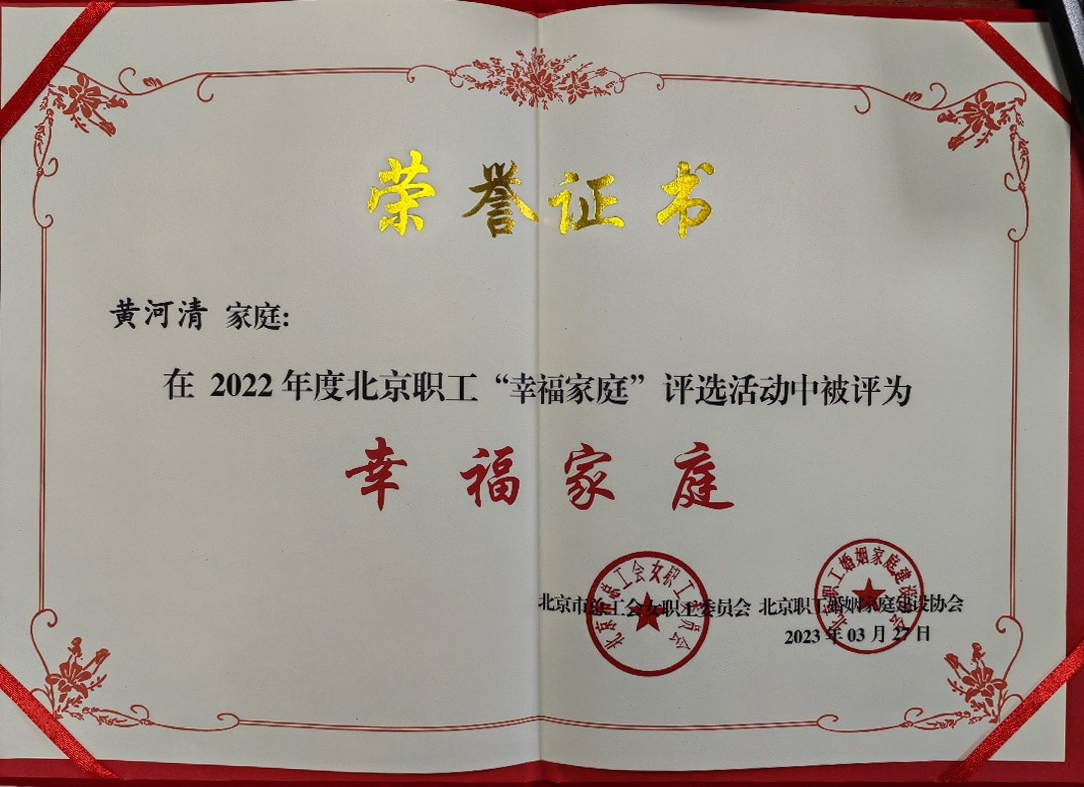 荣誉证书
黄河清 家庭:
在 2022 年度北京职工“幸福家庭”评选活动中被评为
幸福家庭
北京市总工会女职工委员会 北京职工婚姻家庭建设协会
2023 年 03 月 27 日
北京市总工会女职工委员会
北京职工婚姻家庭建设协会